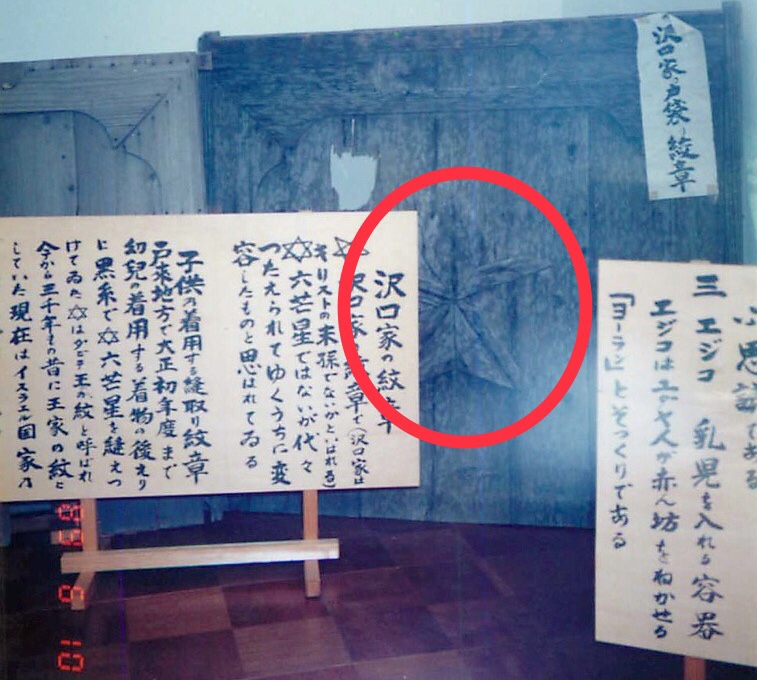 沢口家ノ戸袋ノ紋章
沢口家の紋章
☆沢口家の紋章で(沢口家は
キリストの末孫でないかといはれる)
✡六芒星ではないが代々
つたえられてゆくうちに変
容したものと思はれてゐる
子供の着用する縫取り紋章
戸來地方で大正初年度まで
幼児の着用する着物の後えり
に黒糸で✡六芒星を縫えつ
けてゐた✡はダビデ王の紋と呼ばれ
今から三千年もの昔に王家の紋と
していた現在はイスラエル国家乃
思議である
三 エジコ 乳児を入れる容器
エジコはユダヤ人が赤ん坊をねかせる
「ヨーラン」とそっくりである